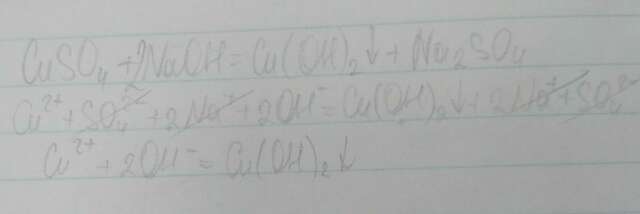 CuSO₄ + 2NaOH = Cu(OH)₂↓ + Na₂SO₄
Cu²⁺ + SO₄²⁻ + 2Na⁺ + 2OH⁻ = Cu(OH)₂↓ + 2Na⁺ + SO₄²⁻
Cu²⁺ + 2OH⁻ = Cu(OH)₂↓